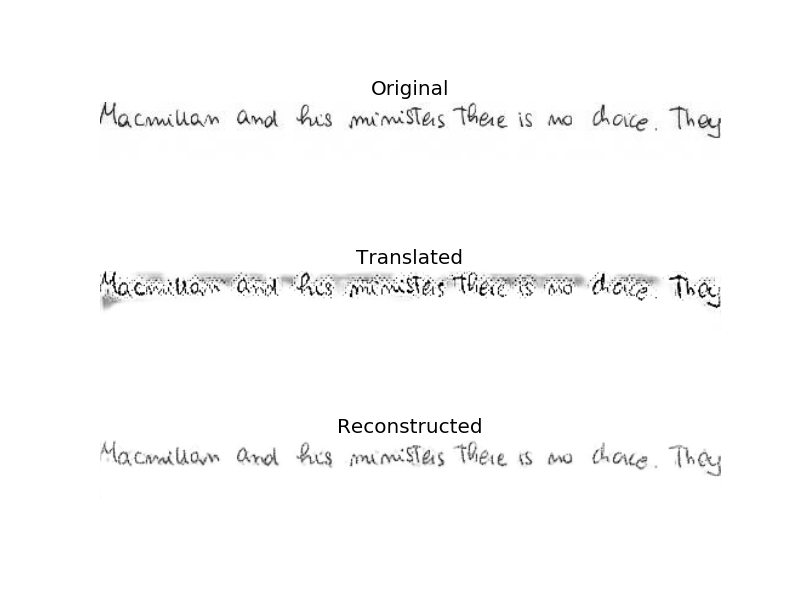 Original
Macmillan and his ministers There is no choice. They
Translated
Macmillan and his ministers There is no choice. They
Reconstructed
Macmillan and his ministers There is no choice. They